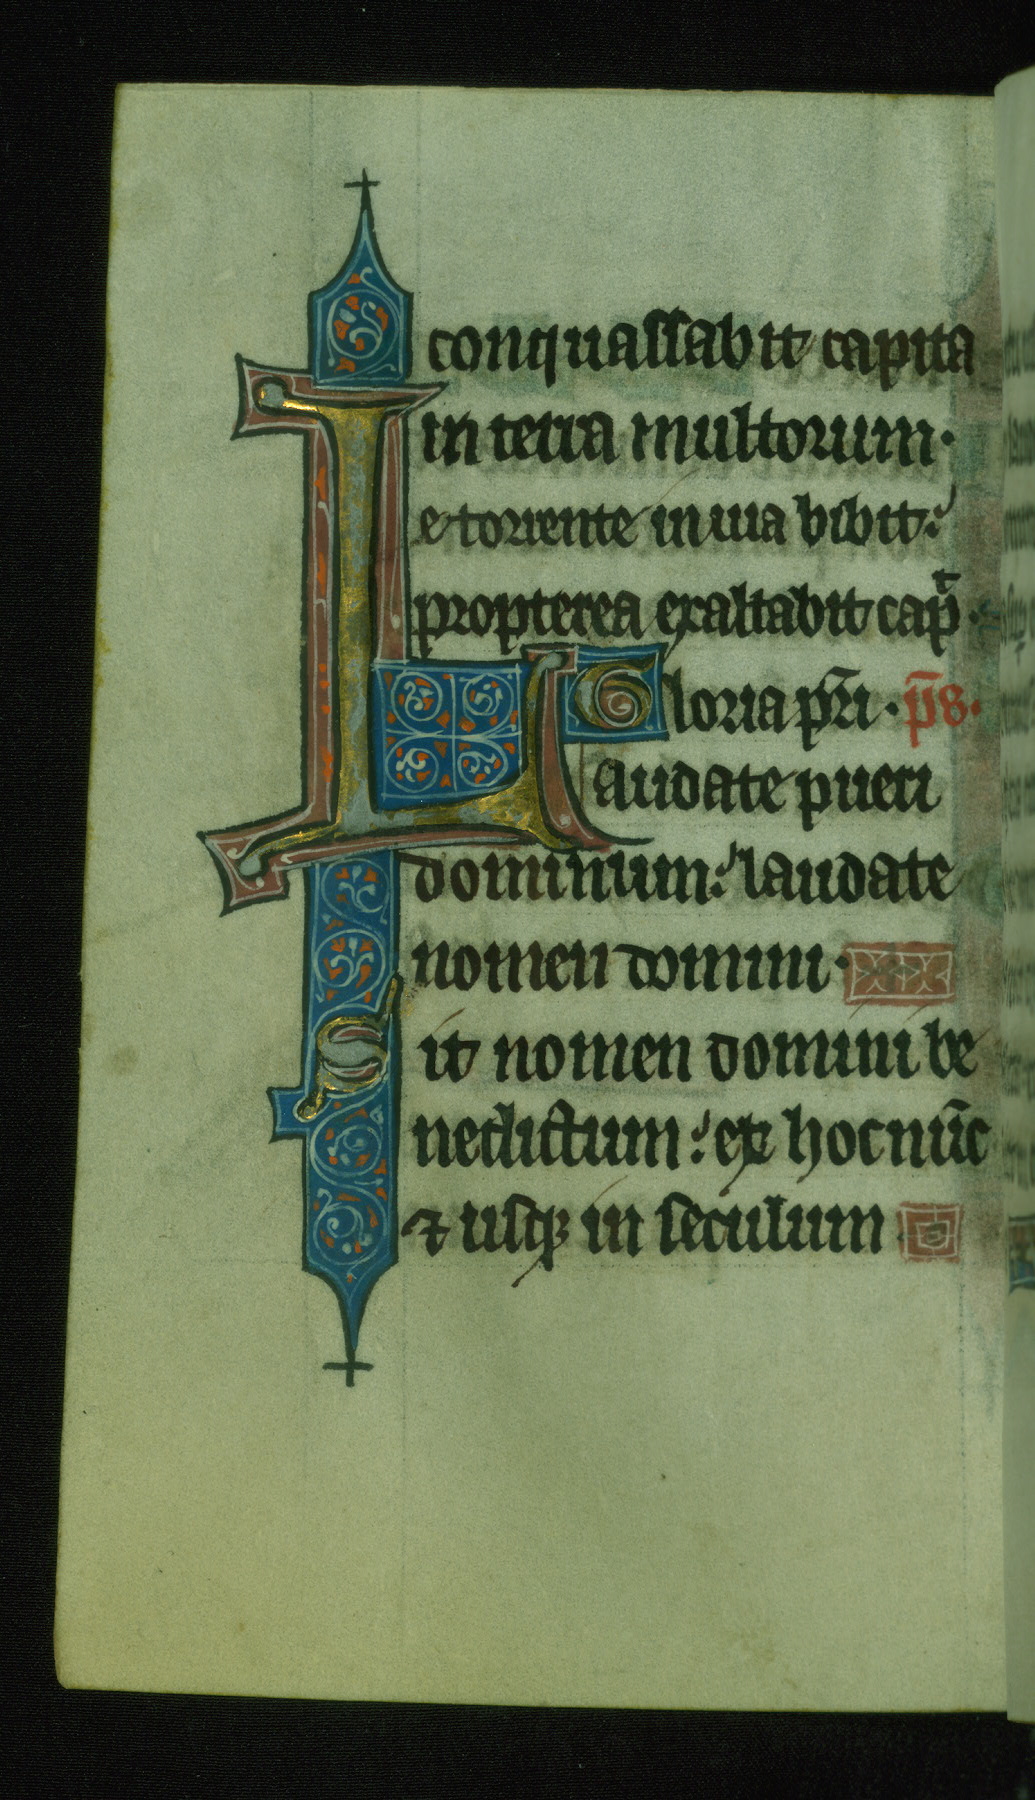 conquassabit capita
in terra multorum·
e torrente in uia bibit:
propterea exaltabit cap̄t·
Gloria pr̄i· p̄s·
Laudate pueri
dominum: laudate
nomen domini·
Sit nomen domini be
nedictum: ex hoc nūc
⁊ usq; in seculum